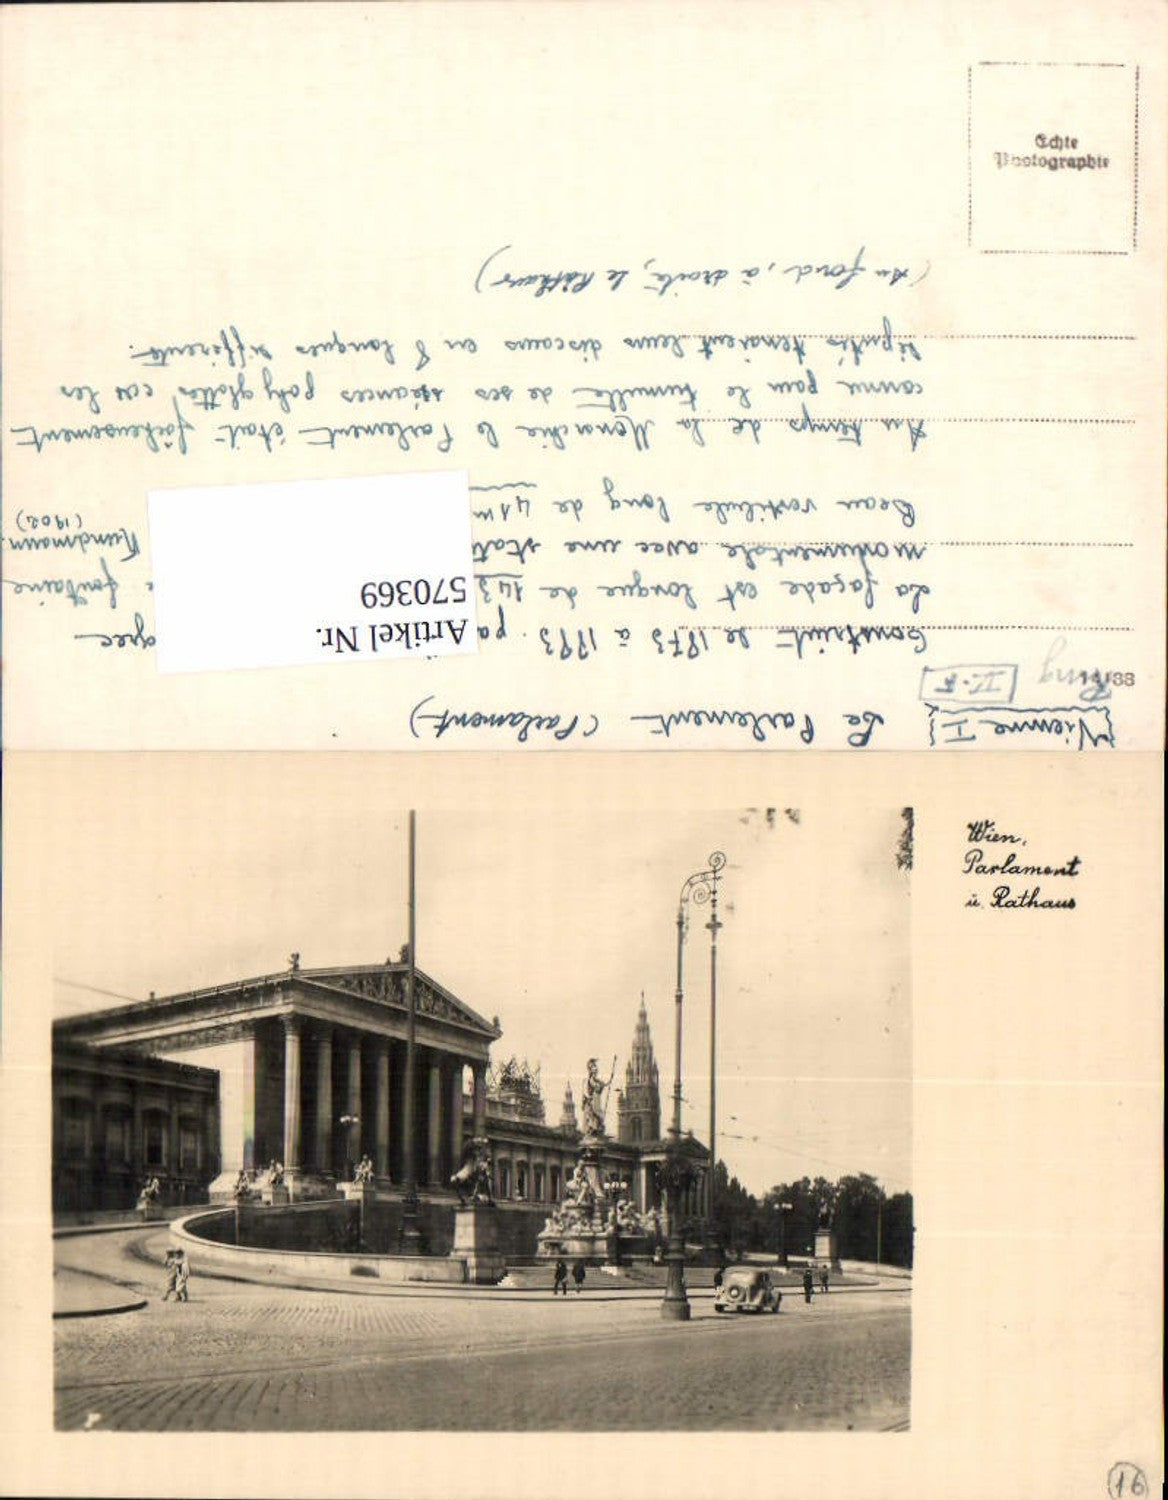 Echte
Photographie
{Vienne I} Le Parlement (Parlament)
Ring II-F
14/33
Construit de 1873 à 1883 pa grec
La façade est longue de 143 e fontaine
monumentale avec une stat Kundmann.
(1902)
Beau vestibule long de 41m
Au temps de la Monarchie le Parlement était fâcheusement
connu pour le tumulte de ses séances polyglottes, car les
députés tenaient leurs discours en 8 langues différentes.
(Au fond, à droite, le Rathaus)
Artikel Nr.
570369
Wien,
Parlament
u. Rathaus
P
16